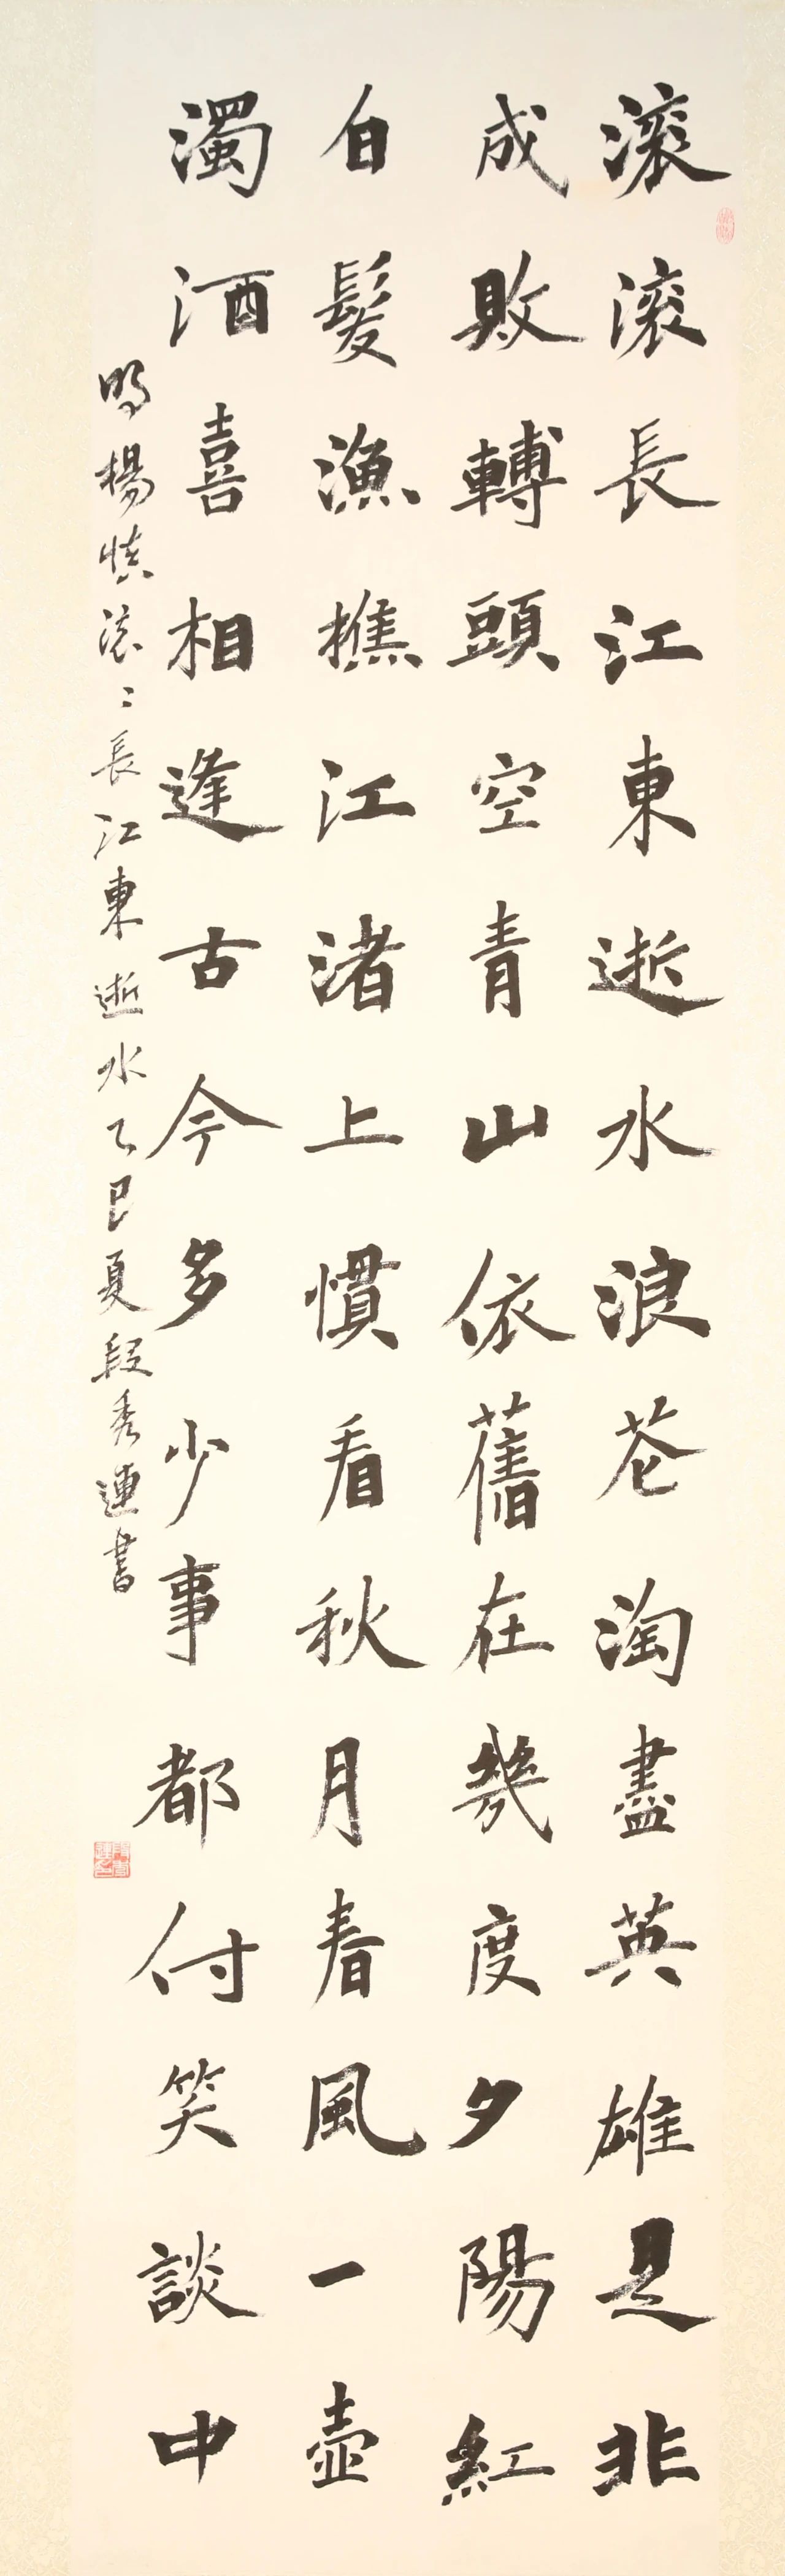 滚滚長江東逝水浪花淘盡英雄是非
成敗轉頭空青山依舊在幾度夕陽紅
白髮漁樵江渚上慣看秋月春風一壺
濁酒喜相逢古今多少事都付笑談中
明楊慎滚〻長江東逝水乙巳夏段秀連書